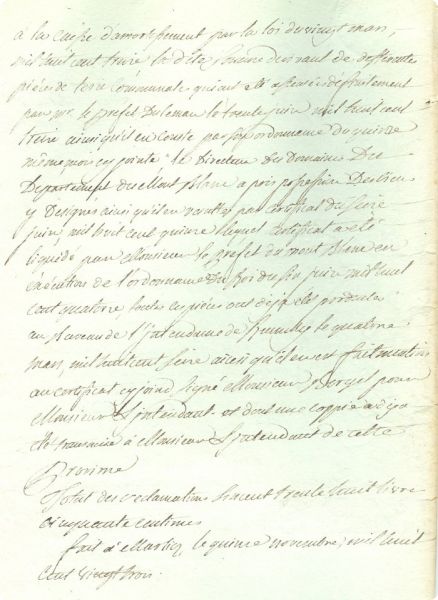 à la caisse d'amortissement par la loi du vingt mars,
mil huit cent treize la dite somme de
pièces de terre communale qui ont été
par mr. le prefet Du Leman le trente juin mil huit cent
treize ainsi qu'il en conste par son ordonnance du quinze
même mois cy jointe. Le Directeur Des Domaines Du
Departement du Mont Blanc a pris possession Des biens
y Designés ainsi qu'il en par certificat du seize
juin mil huit cent quinze lequel Certificat a été
liquidé par Monsieur le prefet du mont Blanc en
execution de l'ordonnance Du Roi du six juin mil huit
cent quatorze, toutes ces pièces ont déjà été produites
au Bureau de l'jntendance de le quatorze
mars, mil huit cent seize ainsi qu'il en est fait mention
au certificat cy joint signé Monsieur pour
Monsieur l'jntendant et dont une coppie a déja
été transmise à Monsieur l'jntendant de cette
Province
Total des reclamations trente huit livre
cinquante centimes
fait à le quinze novembre, mil huit
cent vingt trois.